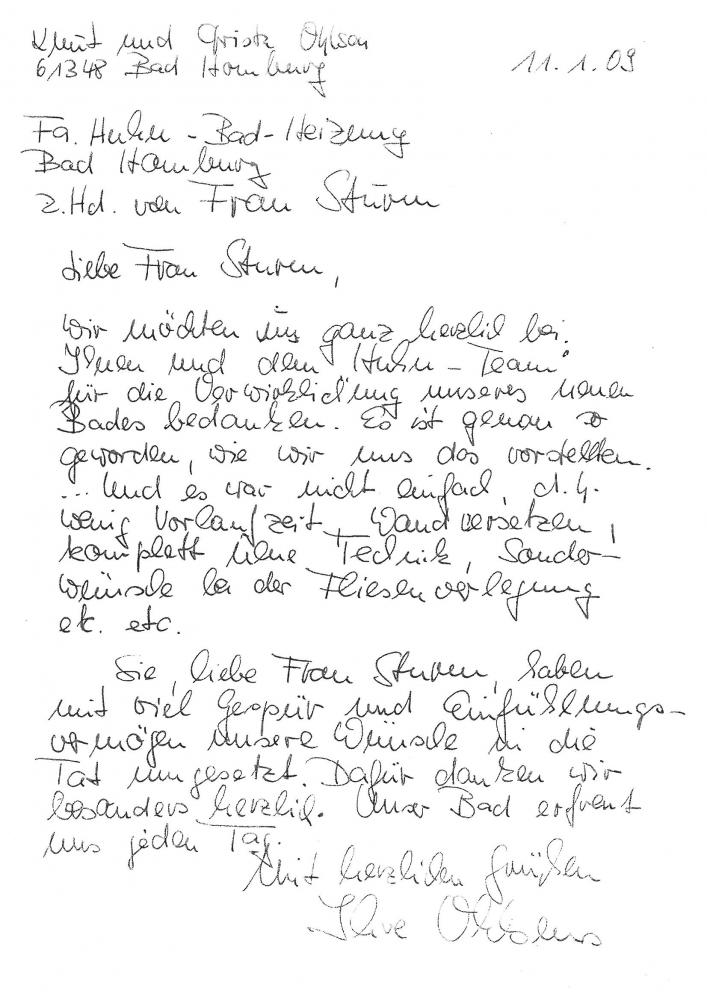 Knut und Christa Ohlson
61348 Bad Homburg
11.1.09
Fa. Huhn - Bad-Heizung
Bad Homburg
z.Hd. von Frau Sturm
Liebe Frau Sturm,
wir möchten uns ganz herzlich bei
Ihnen und dem "Huhn-Team"
für die Verwirklichung unseres neuen
Bades bedanken. Es ist genau so
geworden, wie wir uns das vorstellten.
... Und es war nicht einfach, d.h.
wenig Vorlaufzeit, Wand versetzen,
komplett neue Technik, Sonder-
wünsche bei der Fliesenverlegung
etc. etc.
Sie, liebe Frau Sturm, haben
mit viel Gespür und Einfühlungs-
vermögen unsere Wünsche in die
Tat umgesetzt. Dafür danken wir
besonders herzlich. Unser Bad erfreut
uns jeden Tag.
Mit herzlichen Grüßen
Ihre